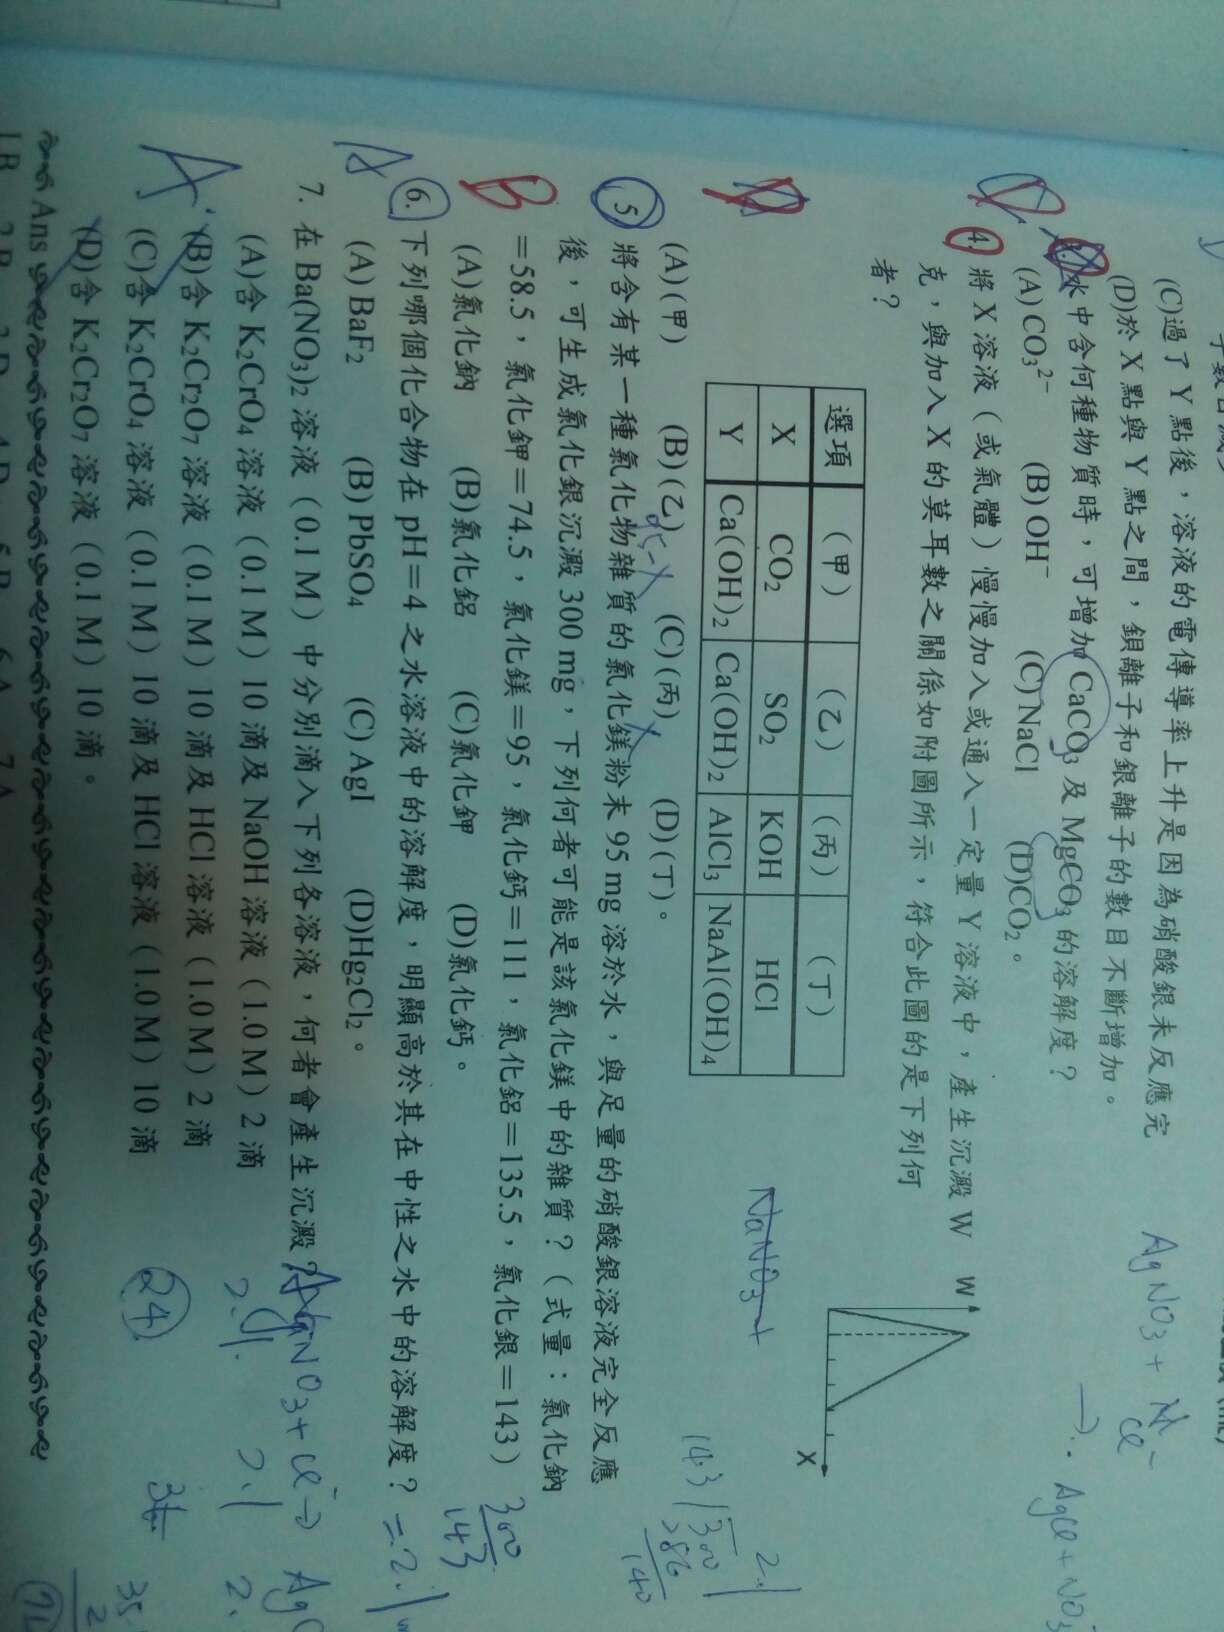 (C)過了 Y 點後，溶液的電傳導率上升是因為硝酸銀未反應完
(D)於 X 點與 Y 點之間，鋇離子和銀離子的數目不斷增加。
水中含何種物質時，可增加 CaCO₃ 及 MgCO₃ 的溶解度？
(A) CO₃²⁻ (B) OH⁻ (C) NaCl (D)CO₂。
4. 將 X 溶液（或氣體）慢慢加入或通入一定量 Y 溶液中，產生沉澱 W
克，與加入 X 的莫耳數之關係如附圖所示，符合此圖的是下列何
者？
W
X
選項 （甲） （乙） （丙） （丁）
X CO₂ SO₂ KOH HCl
Y Ca(OH)₂ Ca(OH)₂ AlCl₃ NaAl(OH)₄
(A)(甲) (B)(乙) (C)(丙) (D)(丁)。
5. 將含有某一種氯化物雜質的氯化鎂粉末 95 mg 溶於水，與足量的硝酸銀溶液完全反應
後，可生成氯化銀沉澱 300 mg，下列何者可能是該氯化鎂中的雜質？（式量：氯化鈉
＝58.5，氯化鉀＝74.5，氯化鎂＝95，氯化鈣＝111，氯化鋁＝135.5，氯化銀＝143）
(A)氯化鈉 (B)氯化鋁 (C)氯化鉀 (D)氯化鈣。
B
6. 下列哪個化合物在 pH＝4 之水溶液中的溶解度，明顯高於其在中性之水中的溶解度？
(A) BaF₂ (B) PbSO₄ (C) AgI (D)Hg₂Cl₂。
A
7. 在 Ba(NO₃)₂ 溶液（0.1 M）中分別滴入下列各溶液，何者會產生沉澱？
(A)含 K₂CrO₄ 溶液（0.1 M）10 滴及 NaOH 溶液（1.0 M）2 滴
(B)含 K₂Cr₂O₇ 溶液（0.1 M）10 滴及 HCl 溶液（1.0 M）2 滴
(C)含 K₂CrO₄ 溶液（0.1 M）10 滴及 HCl 溶液（1.0 M）10 滴
(D)含 K₂Cr₂O₇ 溶液（0.1 M）10 滴。
A
Ans
AgNO₃ +
Cl⁻
→ AgCl + NO₃⁻
NaNO₃ +
143
300
286
140
2.1
300
143
= 2.1
NO₃ + Cl⁻ →
2.1
24